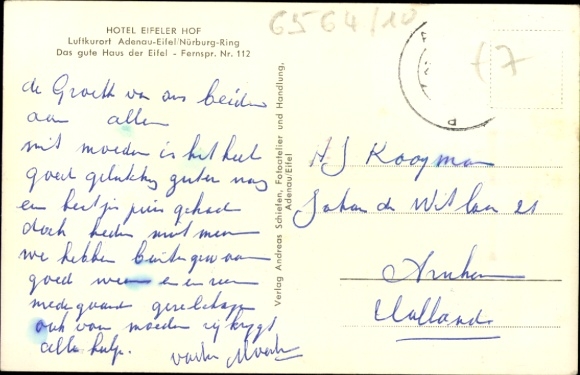 HOTEL EIFELER HOF
Luftkurort Adenau-Eifel/Nürburg-Ring
Das gute Haus der Eifel - Fernspr. Nr. 112
6564/10
17
de Groeten van ons beiden
aan allen
met moeder is het heel
goed gelukkig gisteren nog
een beetje pijn gehad
doch heden niet meer
we hebben buitengewoon
goed weer en een
mede gaande gezelschap
ook van moeder zij krijgt
alle hulp.
vader Moeder
Verlag Andreas Schiefen, Fotoatelier und Handlung,
Adenau/Eifel
AJ Kooyman
Johan de Wit laan 21
Arnhem
Holland